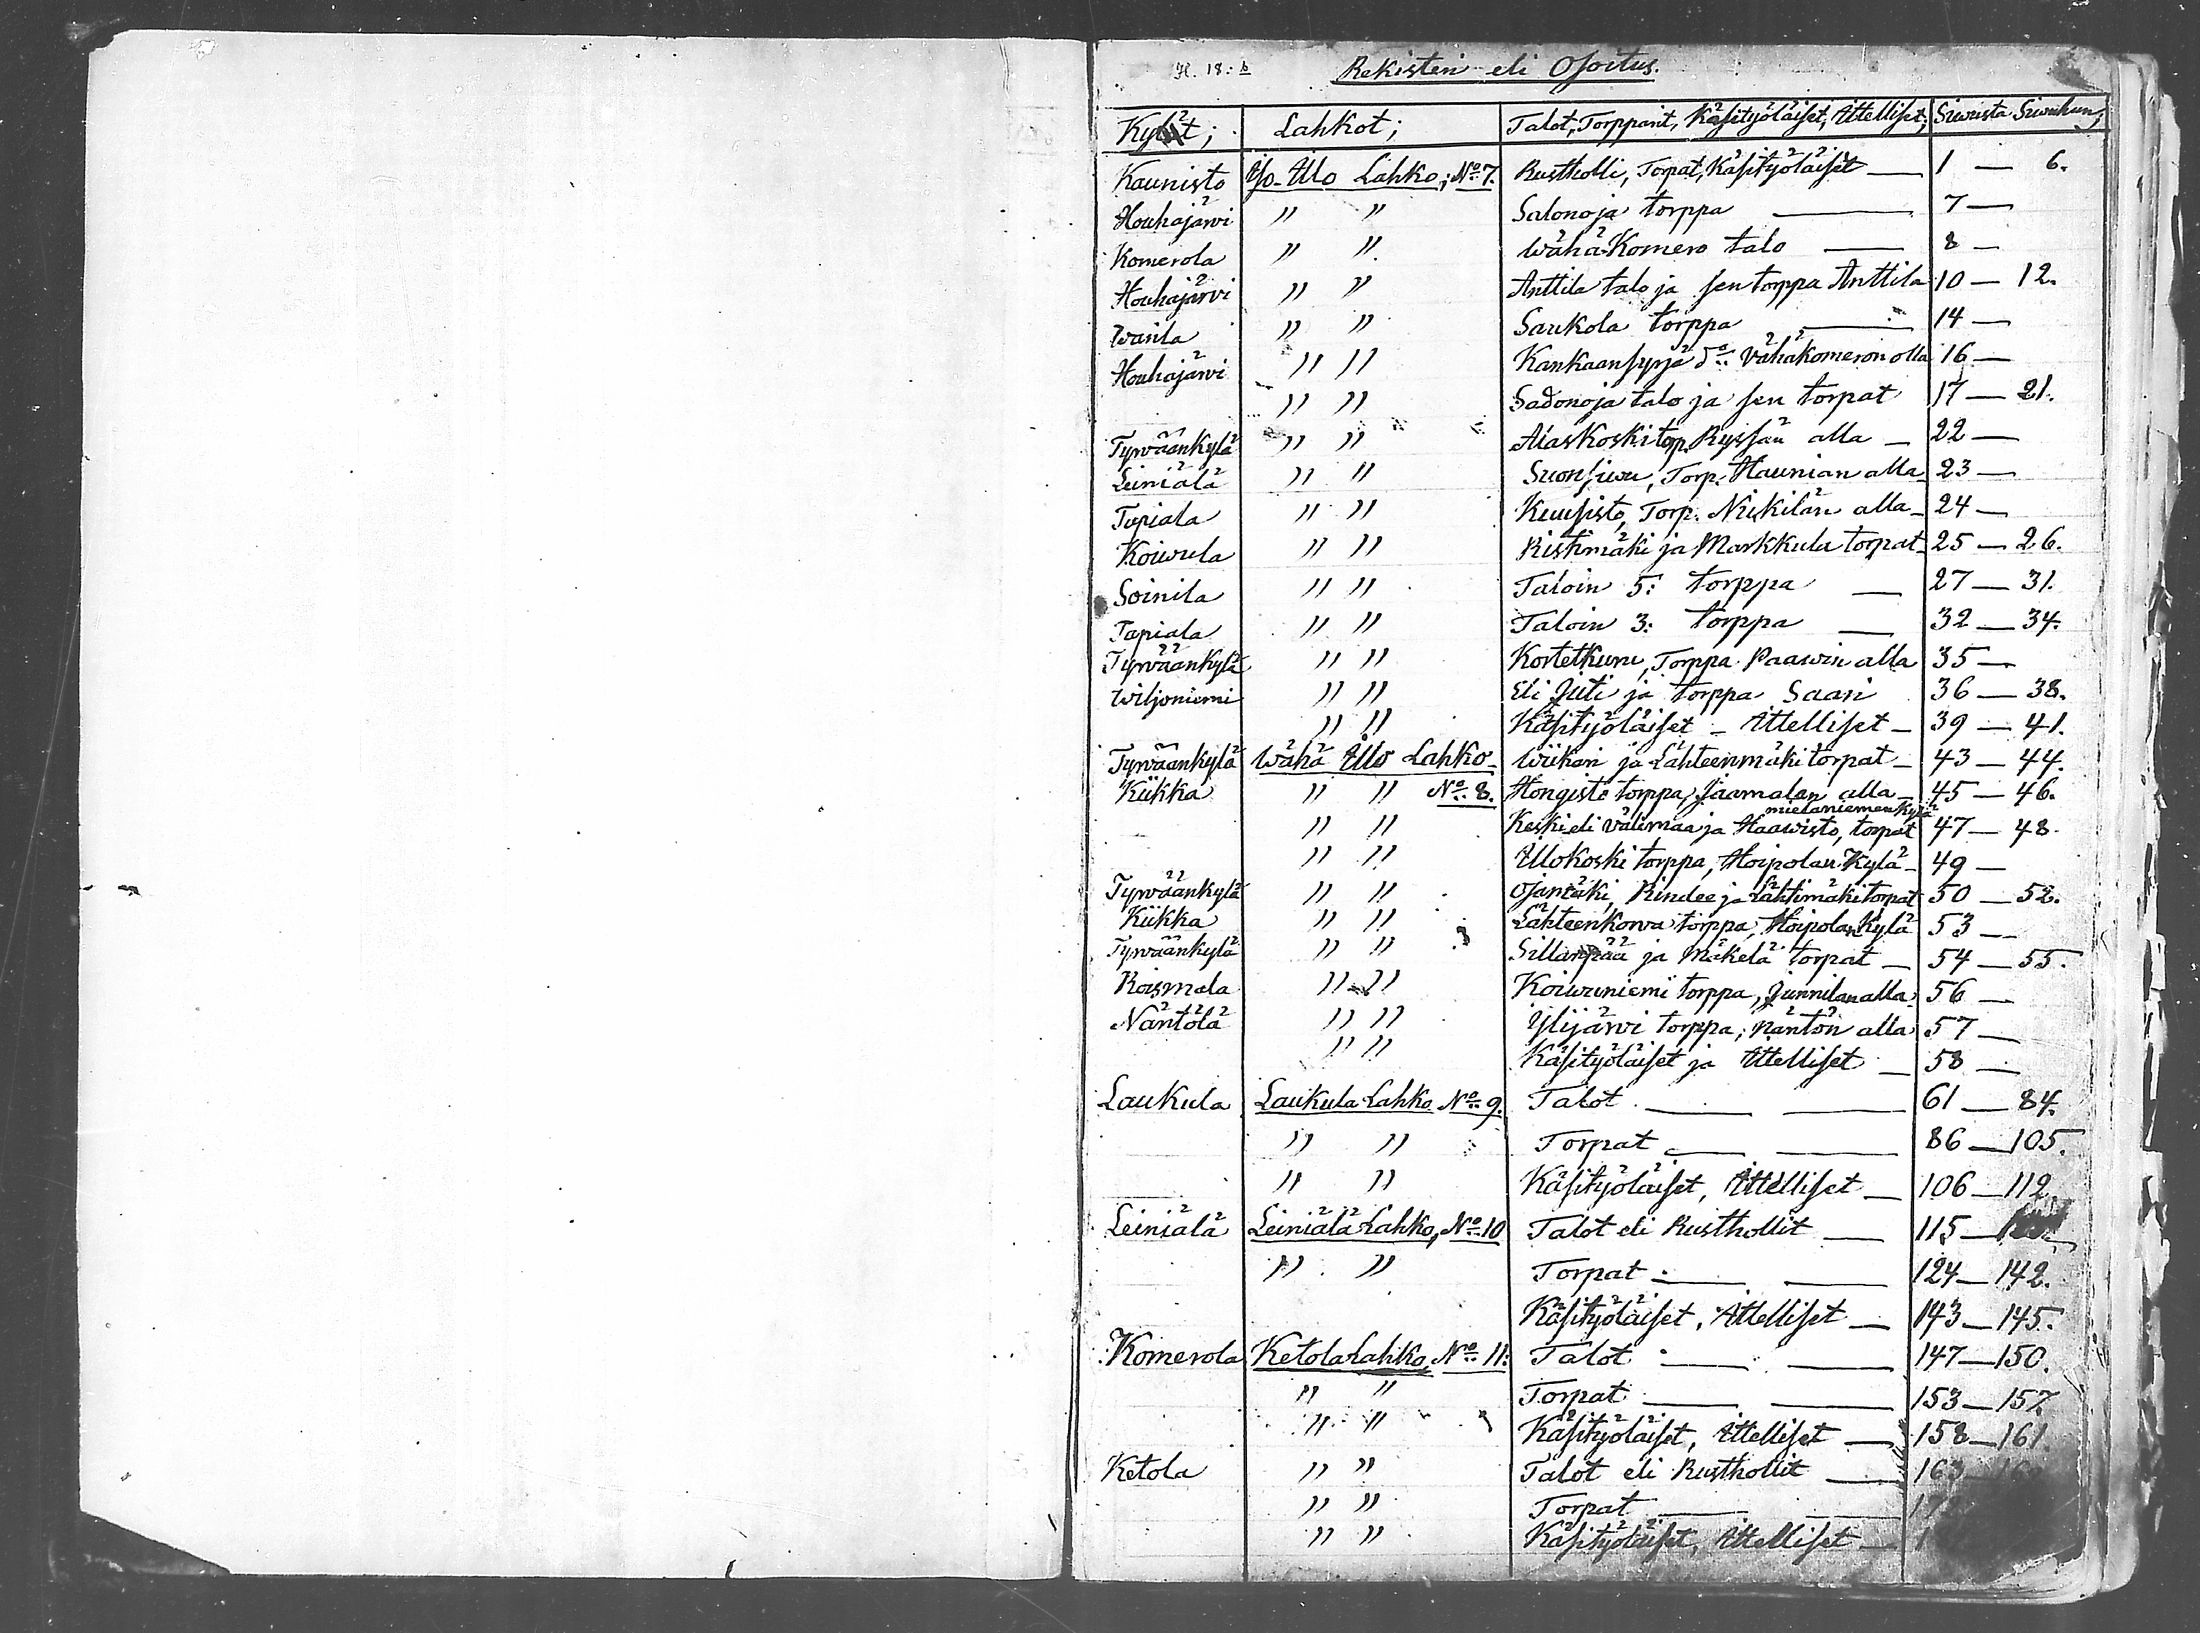 H. 18: b
Rekisteri eli Osoitus.
Kylät; Lahkot; Talot, Torpparit, Käsityöläiset, Ittelliset; Siwusta Siwuhun;
Kaunisto Iso-Illo Lahko; No 7. Rustholli, Torpat, Käsityöläiset — 1 — 6.
Houhajärwi " " Salonoja torppa — 7 —
Komerola " " Wähä-Komero talo — 8 —
Houhajärvi " " Anttila talo ja sen torppa Anttila 10 — 12.
Wanla " " Saukola torppa — 14 —
Houhajärvi " " Kankaansyrjä do Vähäkomeron olla 16 —
" " Sadonoja talo ja sen torpat 17 — 21.
Tyrwäänkylä " " AiasKoski torp. Ryssän alla — 22 —
Leiniälä " " Suonsiwu, Torp. Haunian alla 23 —
Tapiala " " Kuusisto, Torp. Nikilän alla — 24 —
Koiwula " " Ristimäki ja Markkula torpat — 25 — 26.
Soinila " " Taloin 5: torppa — 27 — 31.
Tapiala " " Taloin 3: torppa — 32 — 34.
Tyrwäänkylä " " Kortetkuru, Torppa Paawin alla 35 —
Wiljoniemi " " Eli Jiiti ja torppa Saari 36 — 38.
" " Käsityöläiset — Ittelliset — 39 — 41.
Tyrwäänkylä Wähä Illo Lahko — Wiikari ja Lähteenmäki torpat — 43 — 44.
Kiikka " " No 8. Hongisto torppa, Jaamalan alla — 45 — 46.
mielaniemenkylä
" " Keski eli Välimaa ja Haawisto, torpat 47 — 48.
" " Illokoski torppa, Hoipolan Kylä — 49 —
Tyrwäänkylä " " Ojanmäki, Rindee ja Lähtimäki torpat 50 — 52.
Kiikka " " Lähteenkorva torppa, Hoipolan Kylä 53 —
Tyrwäänkylä " " Sillanpää ja Mäkelä torpat — 54 — 55.
Roismala " " Koiwuniemi torppa, Junnilan alla 56 —
Näntölä " " Ylijärvi torppa, Näntön alla 57 —
" " Käsityöläiset ja Ittelliset — 58 —
Laukula Laukula Lahko No 9. Talot — 61 — 84.
" " Torpat — 86 — 105.
" " Käsityöläiset, Ittelliset — 106 — 112.
Leiniälä Leiniälä Lahko, No 10 Talot eli Rusthollit — 115 —
" " Torpat — 124 — 142.
Käsityöläiset, Ittelliset — 143 — 145.
Komerola Ketola Lahko, No 11: Talot — 147 — 150.
" " Torpat — 153 — 157.
" " Käsityöläiset, Ittelliset — 158 — 161.
Ketola " " Talot eli Rusthollit — 163
" " Torpat —
" " Käsityöläiset, Ittelliset —